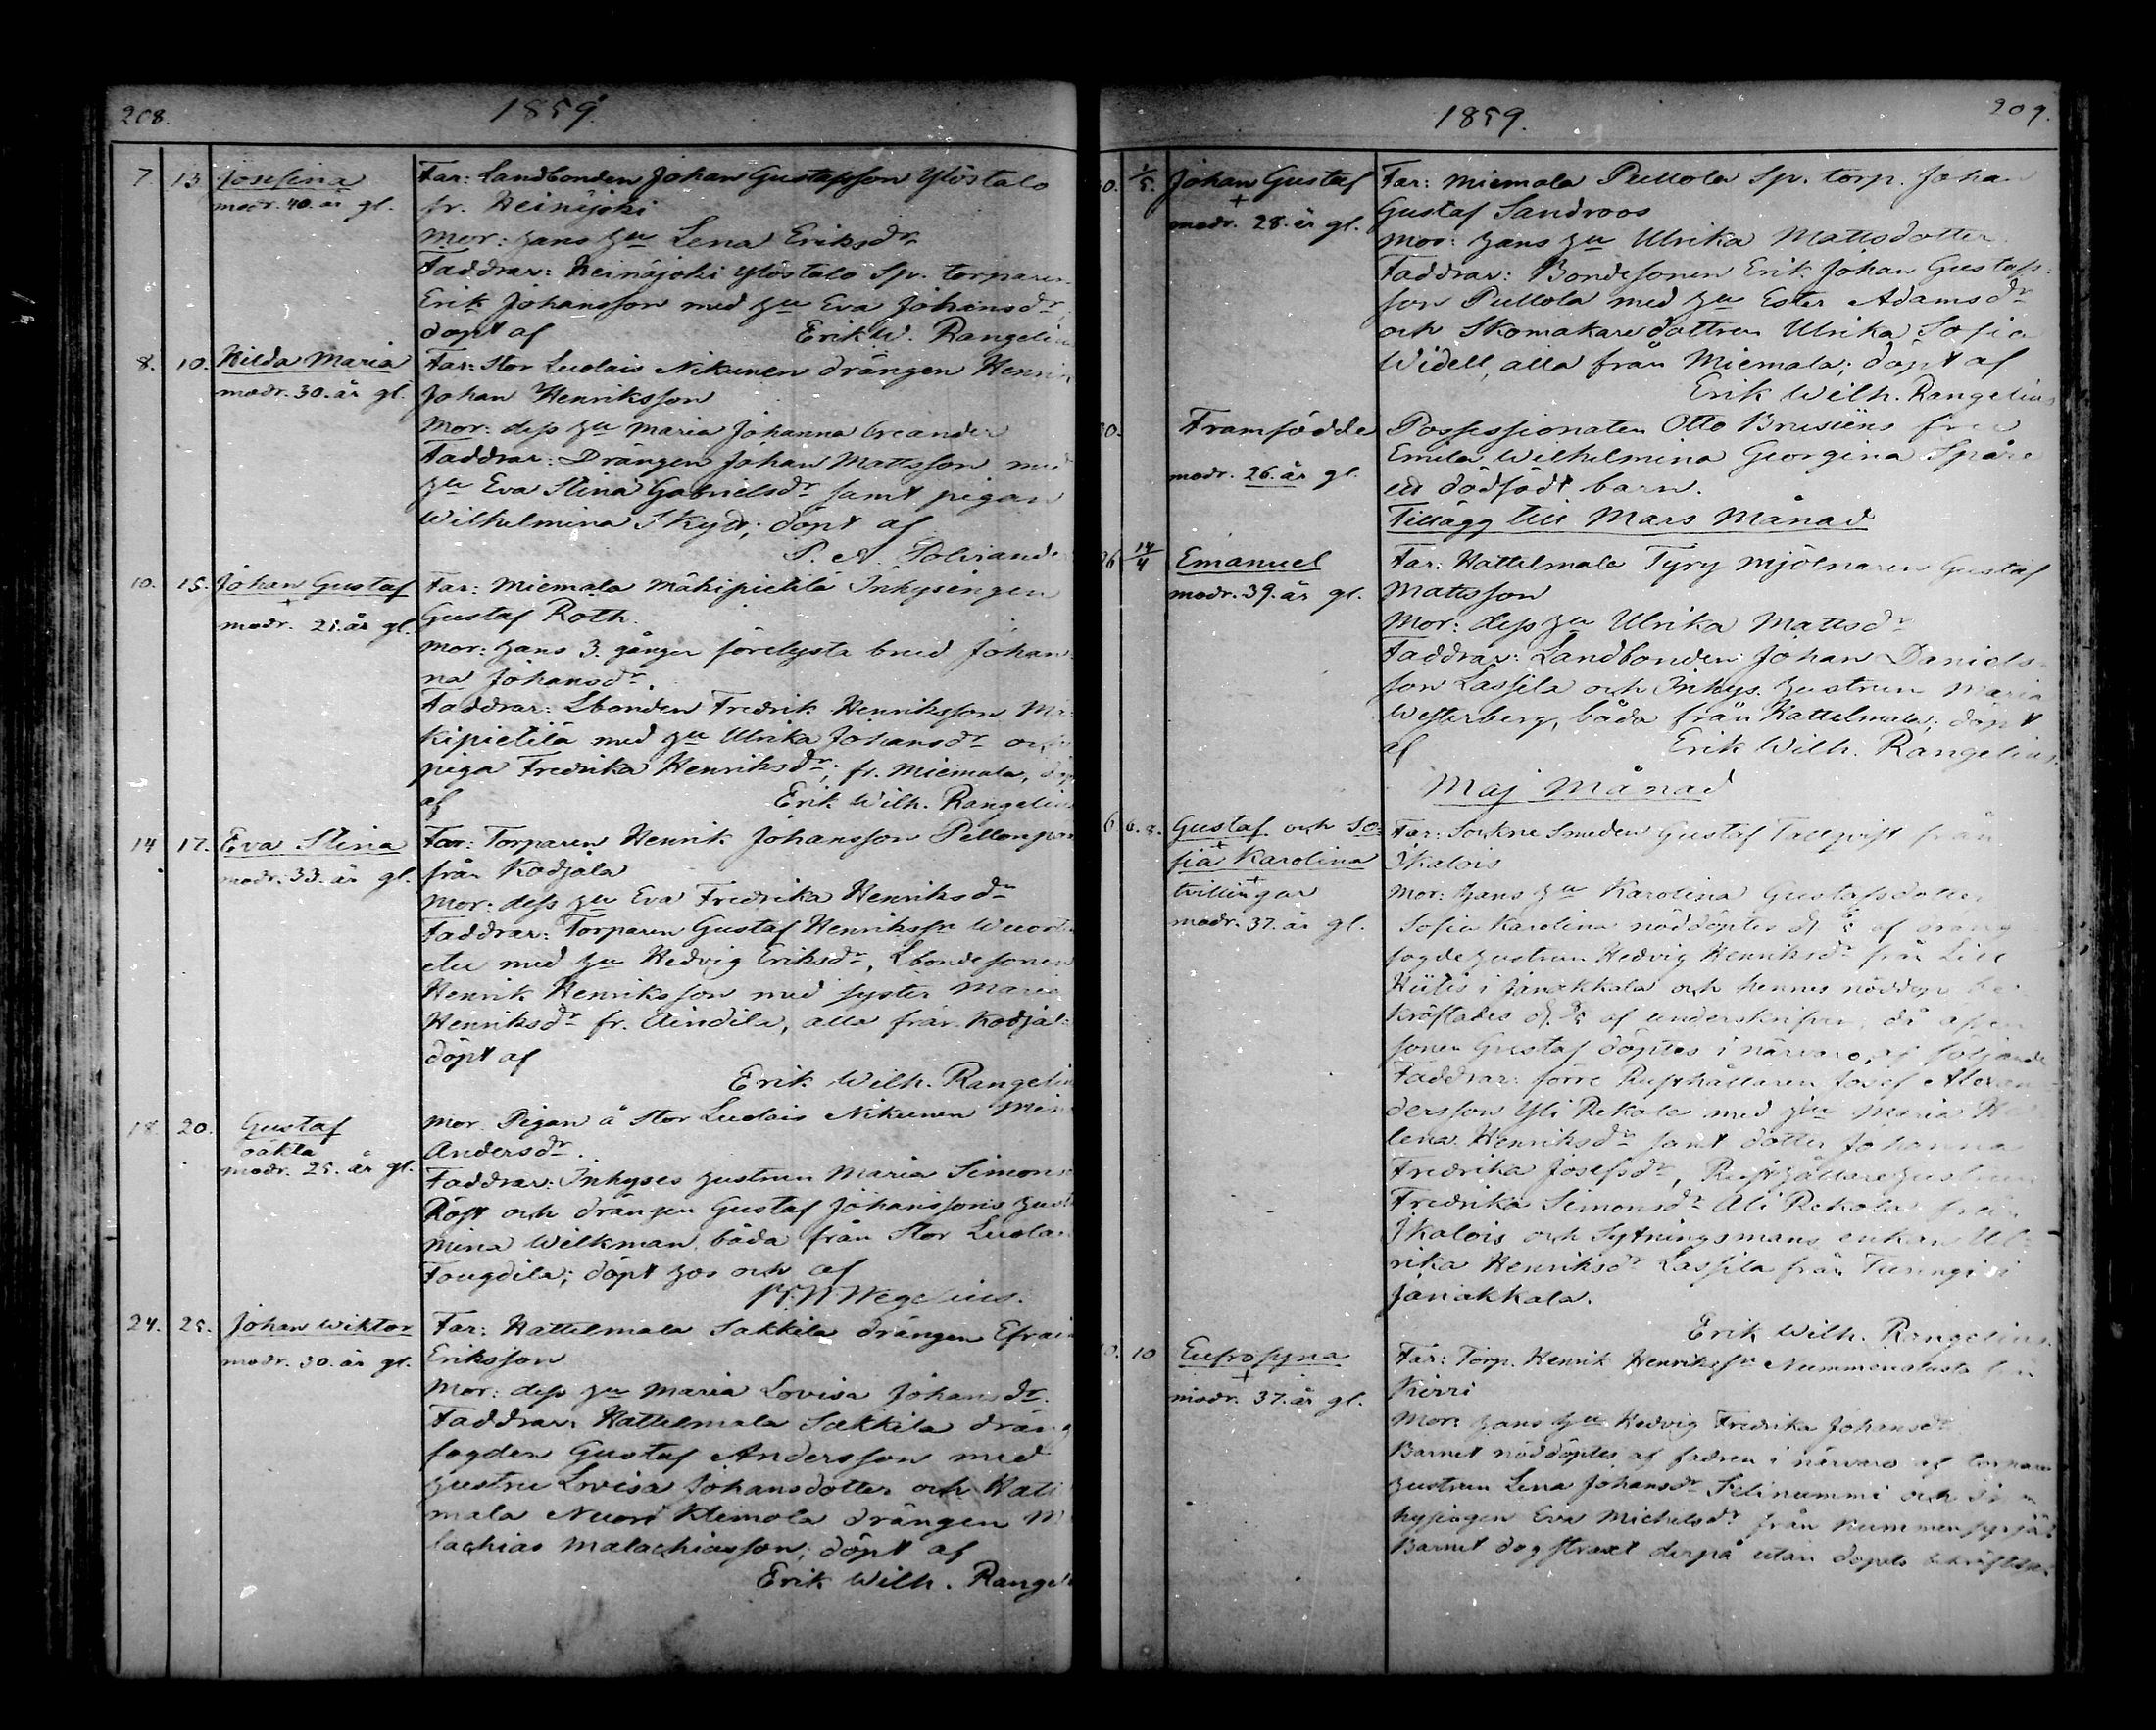 208.
1859.
7. 13. Josefina
modr. 40. år gl.
Far: Landbonden Johan Gustafsson Ylöstalo
fr. Heinäjoki
Mor: hans hu Lena Eriksdr
Faddrar: Heinäjoki Ylöstalo Sp. torparen
Erik Johansson med hu Eva Johansdr,
döpt af Erik W. Rangelius
8. 10. Hilda Maria
modr. 30. år gl.
Far: Stor Luolais Nikunen drängen Henrik
Johan Henriksson
Mor: dess hu Maria Johanna Creander
Faddrar: Drängen Johan Mattsson med
hu Eva Stina Gabrielsdr samt pigan
Wilhelmina Skytt; döpt af
P. A. Polviander
10. 15. Johan Gustaf
+
modr. 21. år gl.
Far: Miemala Mäkipietilä Inhysingen
Gustaf Roth.
Mor: hans 3. gånger förelysta brud Johan-
na Johansdr.
Faddrar: Lbonden Fredrik Henriksson Mä-
kipietilä med hu Ulrika Johansdr och
piga Fredrika Henriksdr; fr. Miemala, döpt
af Erik Wilh. Rangelius
14. 17. Eva Stina
modr. 33. år gl.
Far: Torparen Henrik Johansson Pellonpää
från Kodjala
Mor: dess hu Eva Fredrika Henriksdr
Faddrar: Torparen Gustaf Henrikssn
med hu Hedvig Eriksdr, Lbondesonen
Henrik Henriksson med syster Maria
Henriksdr fr. Aindila, alla från Kodjala
döpt af
Erik Wilh. Rangelius
18. 20. Gustaf
oäkta
modr. 25. år gl.
Mor Pigan å Stor Luolais Nikunen Mina
Andersdr.
Faddrar: Inhyses hustrun Maria Simonsdr
Röst och drängen Gustaf Johanssons hustru
Mina Wilkman båda från Stor Luolais
Tougdila; döpt hos och af
Wegelius.
24. 25. Johan Wiktor
modr. 30. år gl.
Far: Hattelmala Sakkila drängen Efraim
Eriksson
Mor: dess hu Maria Lovisa Johansdr.
Faddrar: Hattelmala Sakkila dräng
fogden Gustaf Andersson med
hustru Lovisa Johansdotter och Hattel
mala Nuori Klemola drängen Ma
lachias Malachiasson; döpt af
Erik Wilh. Rangelius
209.
1859.
30. 1/5. Johan Gustaf
+
modr. 28. år gl.
Far: Miemala Pullola Sp. torp. Johan
Gustaf Sandroos
Mor: hans hu Ulrika Mattsdotter.
Faddrar: Bondesonen Erik Johan Gustafs-
son Pullola med hu Ester Adamsdr
och Skomakaredottren Ulrika Sofia
Widell, alla från Miemala; döpt af
Erik Wilh. Rangelius
30. Framfödde
modr. 26. år gl.
Possessionaten Otto Brusiins fru
Emila Wilhelmina Georgina Spåre
ett dödfödt barn.
Tillägg till Mars Månad
26 14/4 Emanuel
modr. 39. år gl.
Far: Hattelmala Tyry Mjölnaren Gustaf
Mattsson
Mor: dess hu Ulrika Mattsdr
Faddrar: Landbonden Johan Daniels-
son Lassila och Inhys. hustrun Maria
Westerberg, båda från Hattelmala; döpt
af Erik Wilh. Rangelius.
Maj Månad
6. 6. 8. Gustaf och So-
fia + Karolina
+
tvillingar
modr. 37. år gl.
Far: Sockne Smeden Gustaf Tallqvist från
Ikalois
Mor: hans hu Karolina Gustafsdotter
Sofia Karolina nöddöptes d. 6/5 af dräng
fogdehustrun Hedvig Henriksdr från Lill
Hiitis i Janakkala och hennes nöddop be-
kräftades d. 8/5 af underskrifven, då äfven
sonen Gustaf döptes i närvaro af följande
Faddrar: förre Rusthållaren Josef Alexan-
dersson Yli Rekola med hu Maria He-
lena Henriksdr samt dotter Johanna
Fredrika Josefsdr, Rusthållarehustrun
Fredrika Simonsdr Ali Rekola från
Ikalois och Sytningsmans enkan Ul-
rika Henriksdr Lassila från Turengi i
Janakkala.
Erik Wilh. Rangelius.
10. 10 Eufrosyna
+
modr. 37. år gl.
Far: Torp. Henrik Henrikssn Nummenalusta från
Kirri
Mor: hans hu Hedvig Fredrika Johansdr
Barnet nöddöptes af fadren i närvaro af torpare
hustrun Lena Johansdr Selinummi och in-
hysingen Eva Michelsdr från
Barnet dog straxt derpå utan dopets bekräftelse